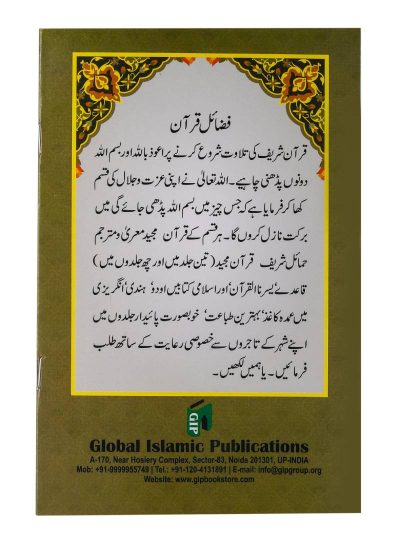 فضائل قرآن
قرآن شریف کی تلاوت شروع کرنے پر اعوذ باللہ اور بسم اللہ
دونوں پڑھنی چاہیے۔ اللہ تعالیٰ نے اپنی عزت و جلال کی قسم
کھا کر فرمایا ہے کہ جس چیز میں بسم اللہ پڑھی جائے گی میں
برکت نازل کروں گا۔ ہر قسم کے قرآن مجید معریٰ و مترجم
حمائل شریف قرآن مجید (تین جلد میں اور چھ جلدوں میں)
قاعدے یسرنا القرآن اور اسلامی کتابیں اردو، ہندی، انگریزی
میں عمدہ کاغذ، بہترین طباعت، خوبصورت پائیدار جلدوں میں
اپنے شہر کے تاجروں سے خصوصی رعایت کے ساتھ طلب
فرمائیں۔ یا ہمیں لکھیں۔
GIP
Global Islamic Publications
A-170, Near Hosiery Complex, Sector-83, Noida 201301, UP-INDIA
Mob: +91-9999955749 | Tel.: +91-120-4131891 | E-mail: info@gipgroup.org
Website: www.gipbookstore.com